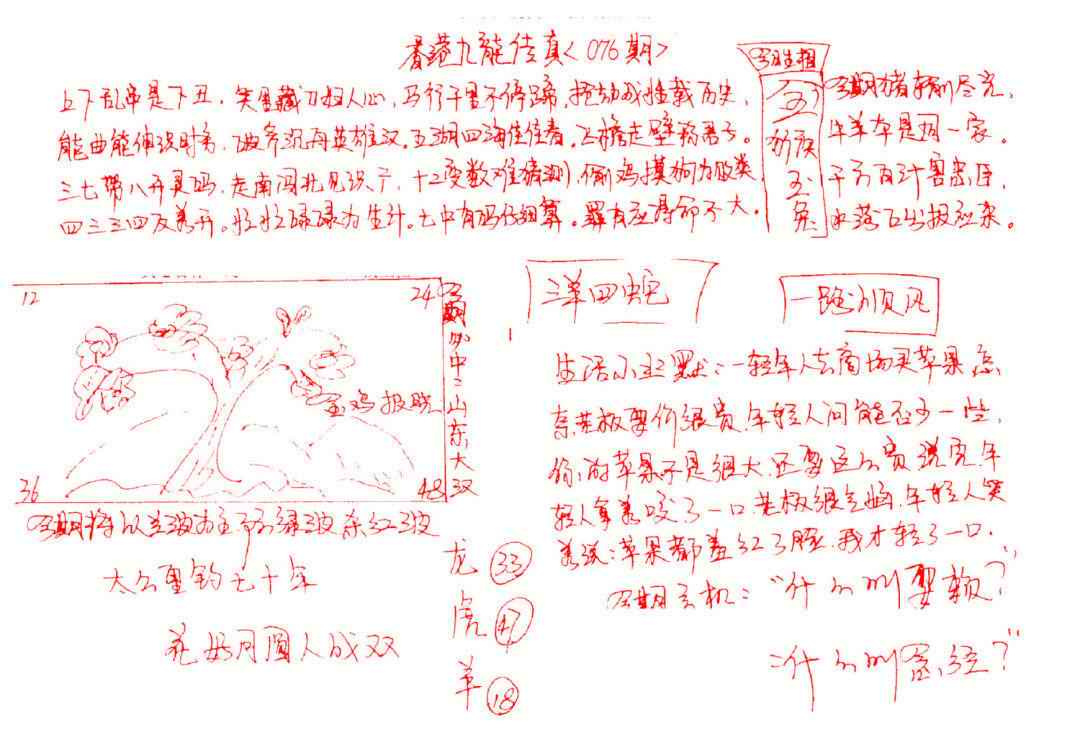 香港九龍传真〈076期〉
上下乱串是下丑，笑里藏刀扫人心，马行千里不停蹄，挖动战挂载历史，
能曲能伸识时务，破斧沉舟英雄汉，五湖四海佳佳春，飞檐走壁
三七带八开灵码，走南闯北见识广，十二变数难猜测，偷鸡摸狗为败类
四三三四反差开。忙忙碌碌为生计。七中有码仔细算。罪有应得命不大。
今期生相
金猴玉兔
今期猪 尽完，
牛羊本是同一家。
千方百计害忠臣，
水落石出报应来。
12
24
36
48
金鸡报晓
今期必中：山东大汉
今期将以兰波为主 防绿波 杀红波
太公垂钓七十年
花好月圆人成双
龙 33
虎 47
羊 18
三洋四蛇
一路顺风
生活小幽默：一轻年人去商场买苹果 怎
奈老板要价很贵，年轻人问能否少一些，
你的苹果不是很大，还要这么贵，说完，年
轻人拿着咬了一口，老板很气恼，年轻人笑
着说：苹果都羞红了脸，我才轻了一口．
今期玄机："什么叫耍赖？"
"什么叫 ？"